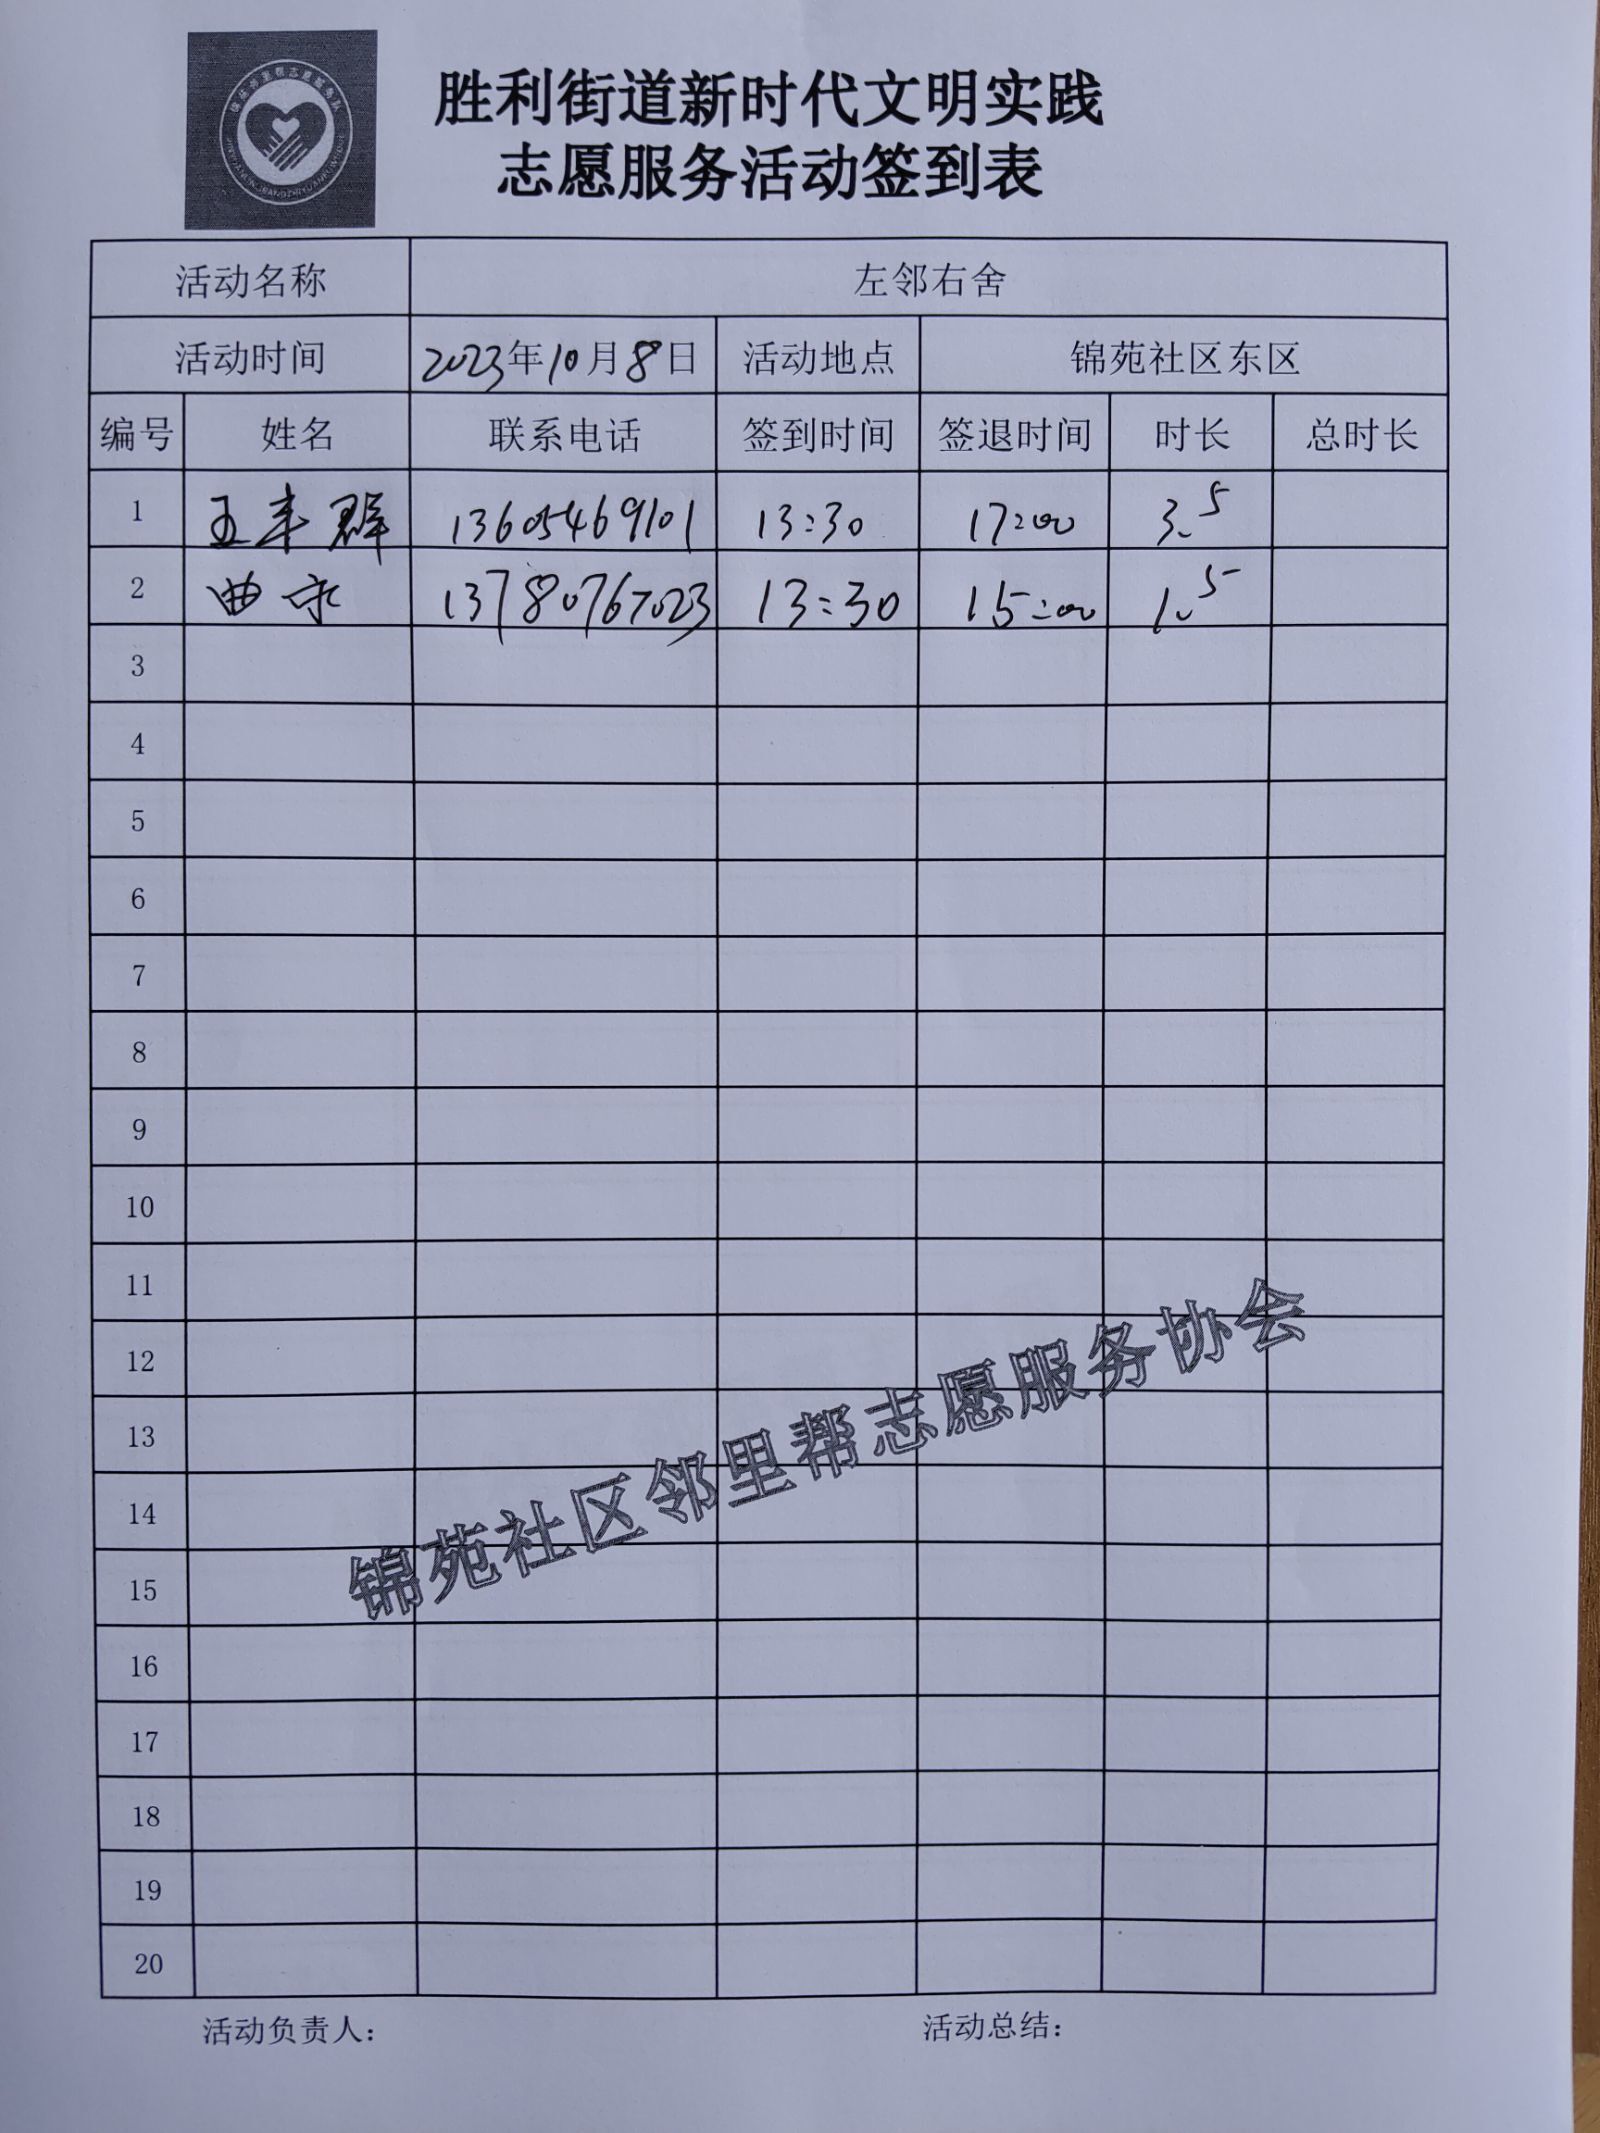 胜利街道新时代文明实践
志愿服务活动签到表
活动名称 左邻右舍
活动时间 2023年10月8日 活动地点 锦苑社区东区
编号 姓名 联系电话 签到时间 签退时间 时长 总时长
1 王丰群 13605469101 13:30 17:00 3.5
2 曲 13780767023 13:30 15:00 1.5
3
4
5
6
7
8
9
10
11
12
13
14
15
16
17
18
19
20
锦苑社区邻里帮志愿服务协会
活动负责人： 活动总结：